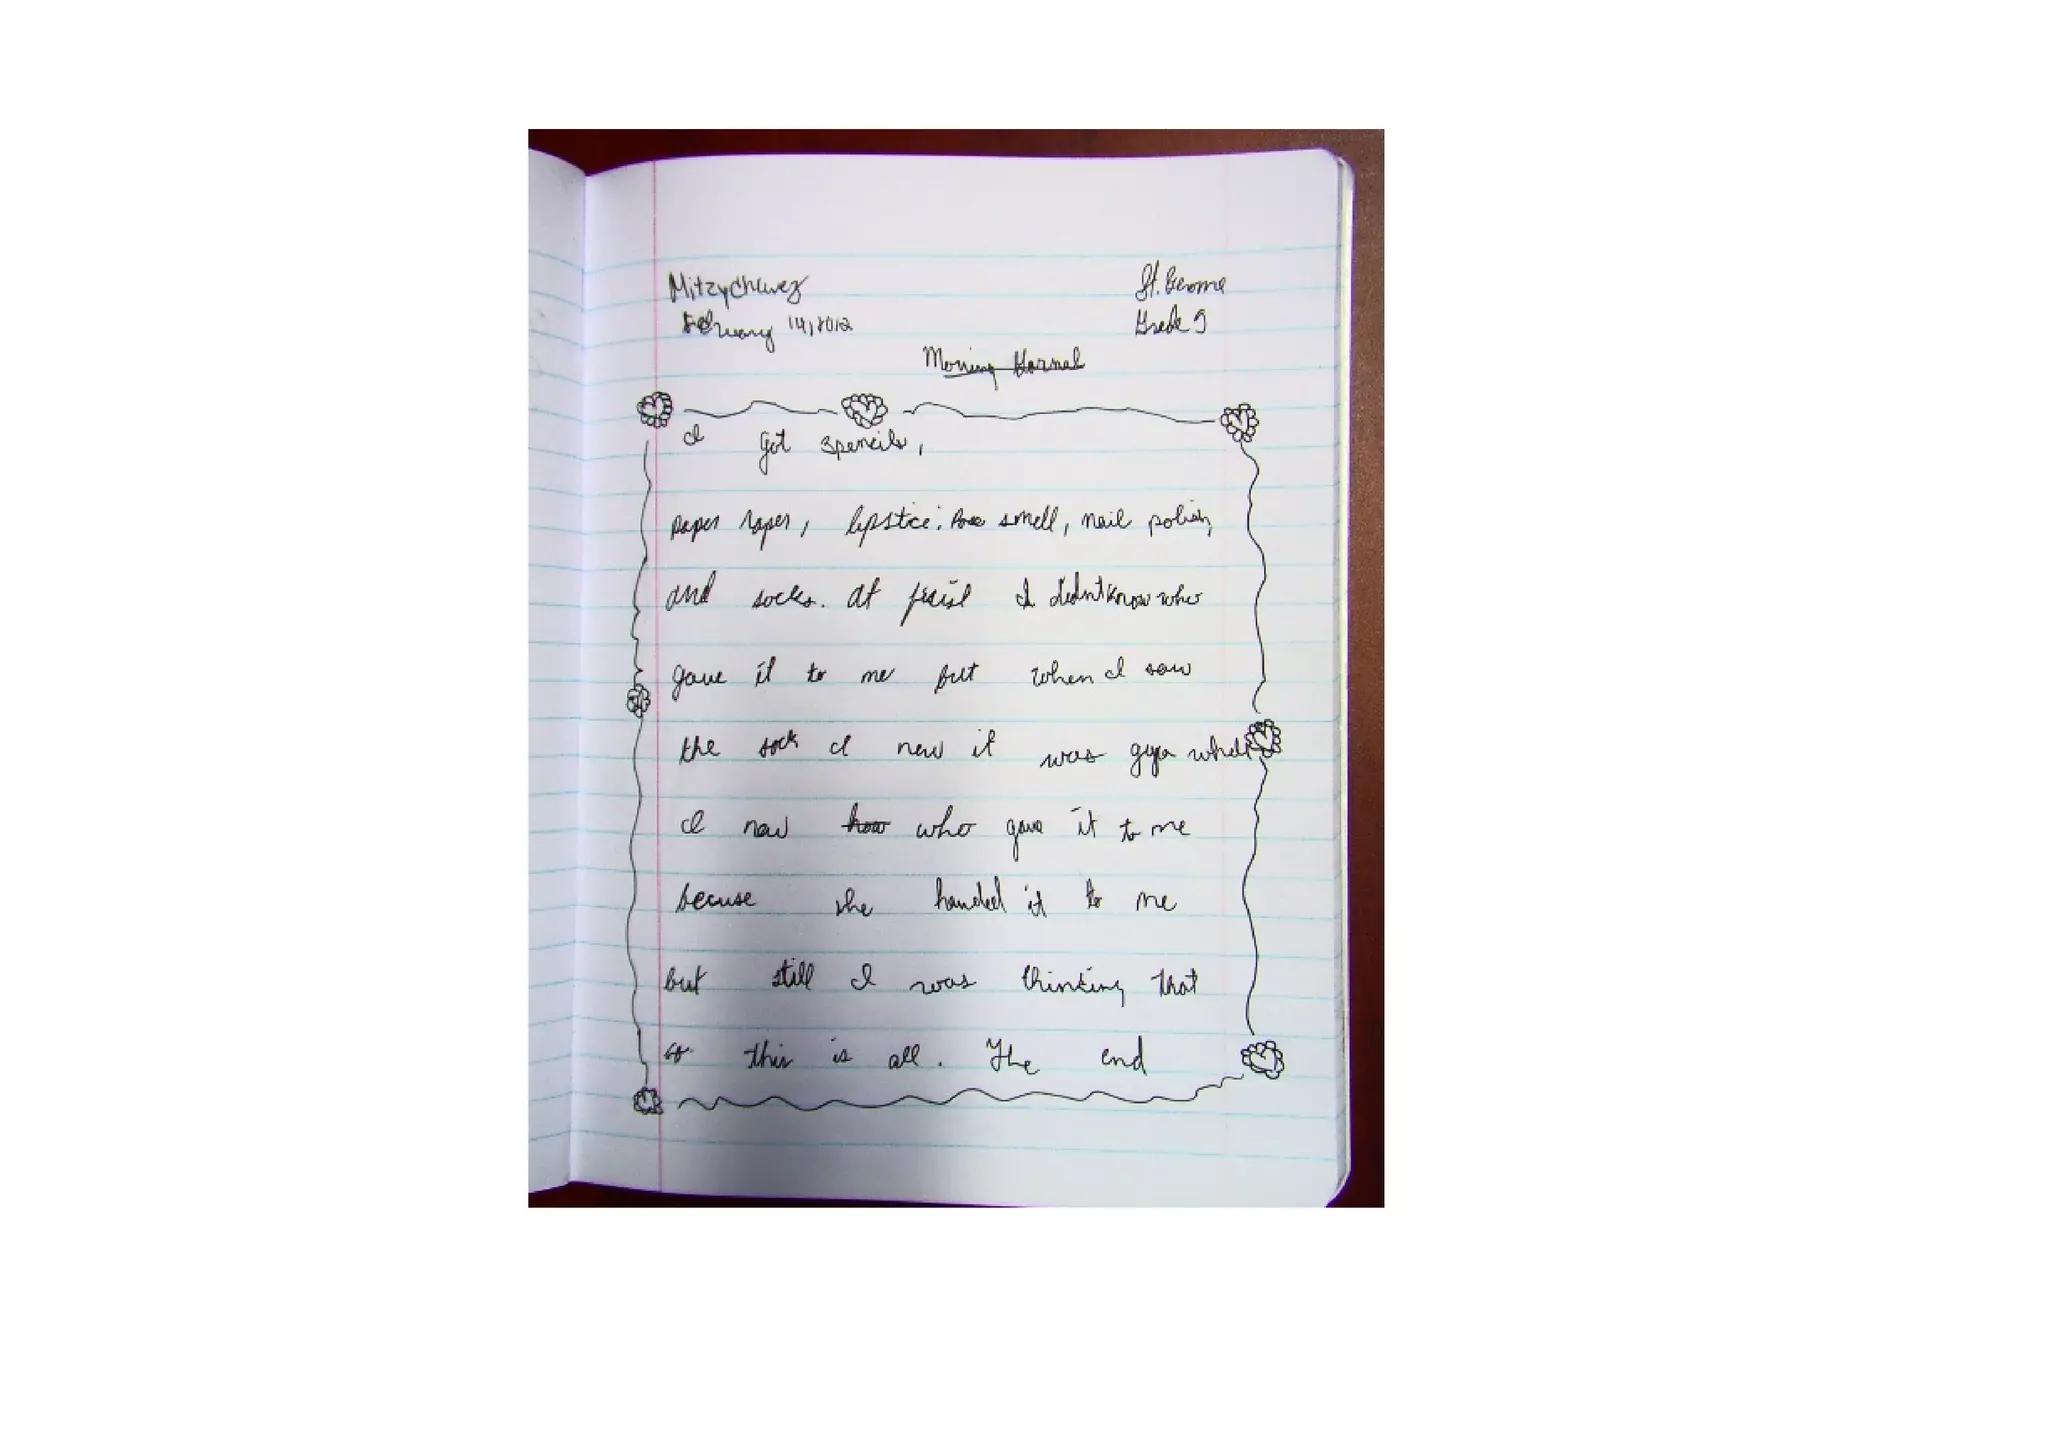 Mitzy Chavez St. Gerome
February 14, 2012 Grade 5
Morning
I got 3 pencils,
paper, smell, nail polish,
and socks. At I didnt know who
gave it to me but when I saw
the sock I new it was
I new how who gave it to me
becuse she handed it to me
but still I was thinking that
so this is all. The end